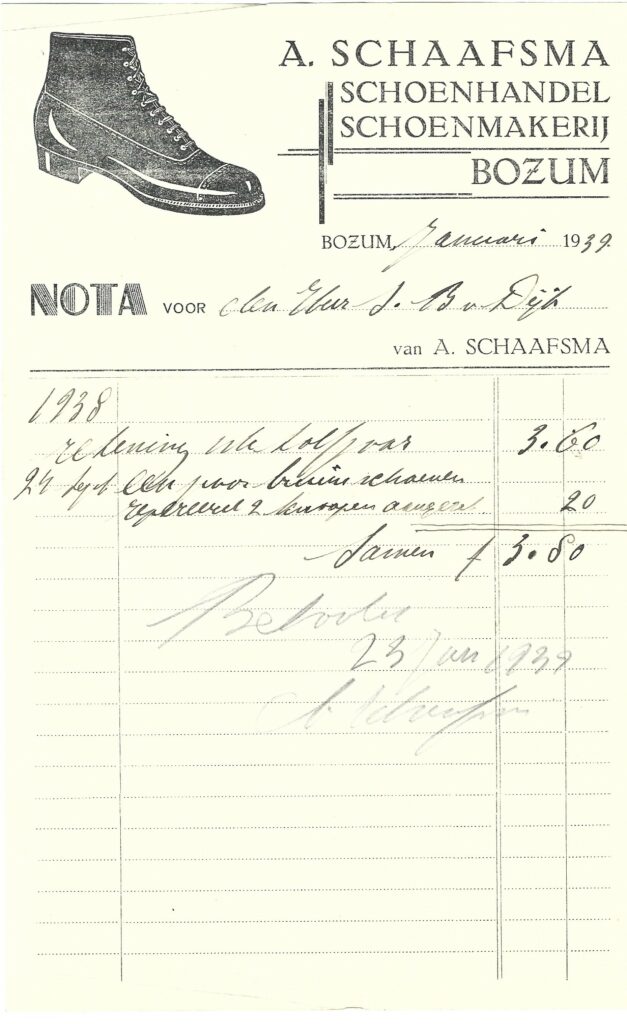 A. SCHAAFSMA
SCHOENHANDEL
SCHOENMAKERIJ
BOZUM
BOZUM, Januari 1939.
NOTA VOOR den Heer S. B v Dijk
van A. SCHAAFSMA
1938
rekening 3.60
24 Sept een paar bruin schoenen
repareert 2 knoopen aangezet 20
Samen f 3.80
23 Jan 1939
A. Schaafsma